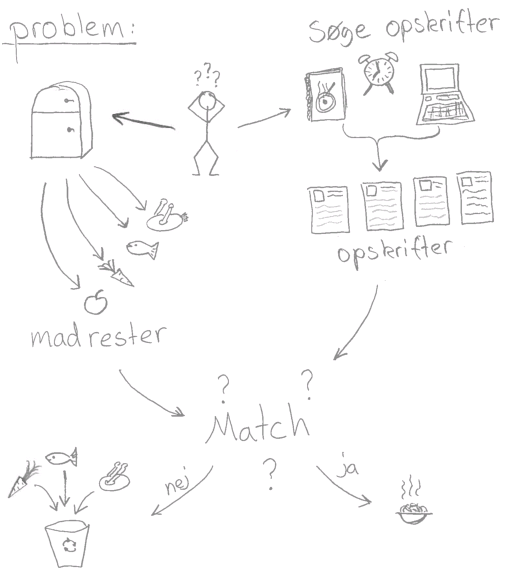 problem:
Søge opskrifter
???
opskrifter
madrester
? ?
Match
?
nej
ja